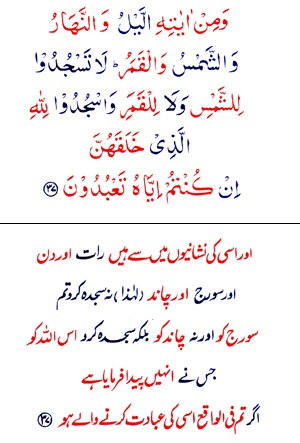 وَمِنْ اٰیٰتِهِ الَّیْلُ وَ النَّهَارُ
وَ الشَّمْسُ وَ الْقَمَرُ ؕ لَا تَسْجُدُوْا
لِلشَّمْسِ وَ لَا لِلْقَمَرِ وَ اسْجُدُوْا لِلّٰهِ
الَّذِیْ خَلَقَهُنَّ
اِنْ كُنْتُمْ اِیَّاهُ تَعْبُدُوْنَ ﴿۳۷﴾
اور اسی کی نشانیوں میں سے ہیں رات اور دن
اور سورج اور چاند (لہٰذا) نہ سجدہ کرو تم
سورج کو اور نہ چاند کو بلکہ سجدہ کرو اس اللہ کو
جس نے انہیں پیدا فرمایا ہے
اگر تم فی الواقع اسی کی عبادت کرنے والے ہو ﴿۳۷﴾